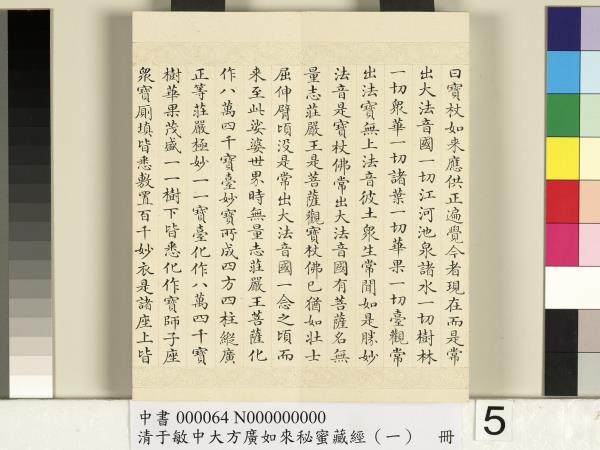 曰寶杖如來應供正遍覺今者現在而是常
出大法音國一切江河池泉諸水一切樹林
一切衆華一切諸葉一切華果一切臺觀常
出法寶無上法音彼土衆生常聞如是勝妙
法音是寶杖佛常出大法音國有菩薩名無
量志莊嚴王是菩薩觀寶杖佛已猶如壯士
屈伸臂頃没是常出大法音國一念之頃而
來至此娑婆世界時無量志莊嚴王菩薩化
作八萬四千寶臺妙寶所成四方四柱縱廣
正等莊嚴極妙一一寶臺化作八萬四千寶
樹華果茂盛一一樹下皆悉化作寶師子座
衆寶廁填皆悉敷置百千妙衣是諸座上皆
中書 000064 N000000000
清于敏中大方廣如來秘蜜藏經（一） 冊
5